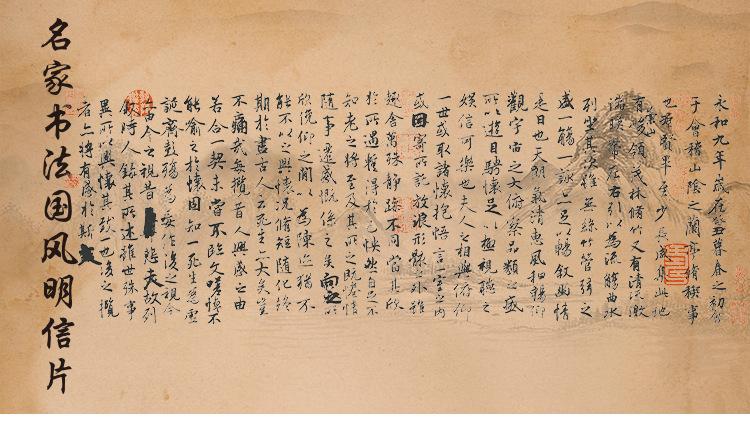 名家书法国风明信片
永和九年歲在癸丑暮春之初會
于會稽山陰之蘭亭脩禊事
也羣賢畢至少長咸集此地
有崇山峻領茂林脩竹又有清流激
湍暎帶左右引以為流觴曲水
列坐其次雖無絲竹管弦之
盛一觴一詠亦足以暢敘幽情
是日也天朗氣清惠風和暢仰
觀宇宙之大俯察品類之盛
所以遊目騁懷足以極視聽之
娛信可樂也夫人之相與俯仰
一世或取諸懷抱悟言一室之內
或因寄所託放浪形骸之外雖
趣舍萬殊靜躁不同當其欣
於所遇暫得於己快然自足不
知老之將至及其所之既惓情
隨事遷感慨係之矣向之所
欣俛仰之閒以為陳迹猶不
能不以之興懷況脩短隨化終
期於盡古人云死生亦大矣豈
不痛哉每攬昔人興感之由
若合一契未嘗不臨文嗟悼不
能喻之於懷固知一死生為虛
誕齊彭殤為妄作後之視今
亦由今之視昔悲夫故列
敘時人錄其所述雖世殊事
異所以興懷其致一也後之攬
者亦將有感於斯文